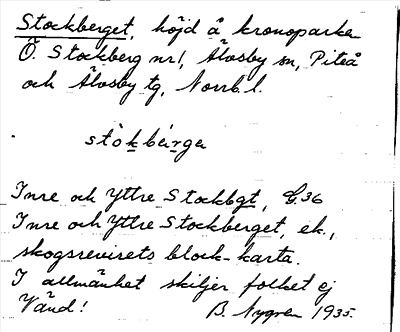 Stockberget, höjd å kronoparken
Ö. Stockberg nr 1, Älvsby sn, Piteå
och Älvsby tg, Norrb. l.
stòkbárga
Inre och Yttre Stockbgt, G.36
Inre och Yttre Stockberget, ek.,
skogsrevirets block-karta.
I allmänhet skiljer folket ej
Vänd! B. Nygren 1935.